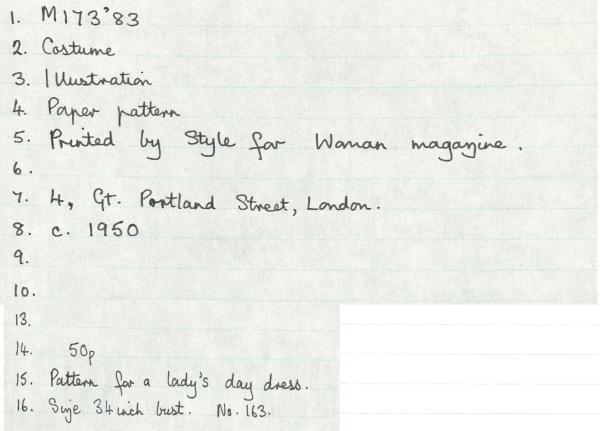 1. M173'83
2. Costume
3. Illustration
4. Paper pattern
5. Printed by Style for Woman magazine.
6.
7. 4, Gt. Portland Street, London.
8. c. 1950
9.
10.
13.
14. 50p
15. Pattern for a lady's day dress.
16. Size 34 inch bust. No. 163.